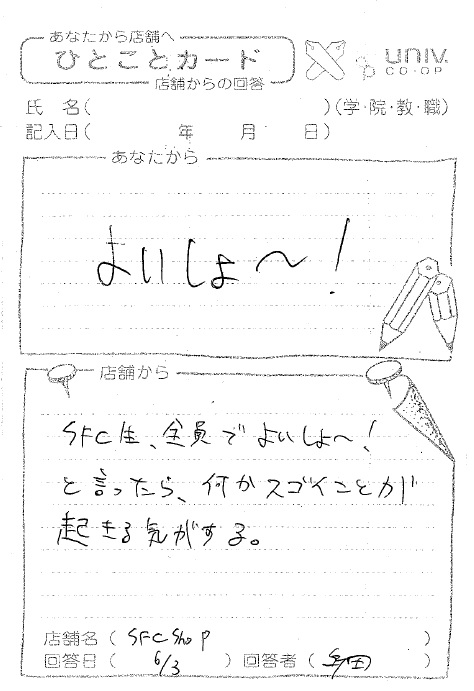 あなたから店舗へ
ひとことカード
店舗からの回答
UNIV.
CO・OP
氏 名( )(学・院・教・職)
記入日( 年 月 日)
あなたから
よいしょ〜!
店舗から
SFC生、全員でよいしょ〜!
と言ったら、何かスゴイことが
起きる気がする。
店舗名( SFC Shop )
回答日( 6/3 ) 回答者( )